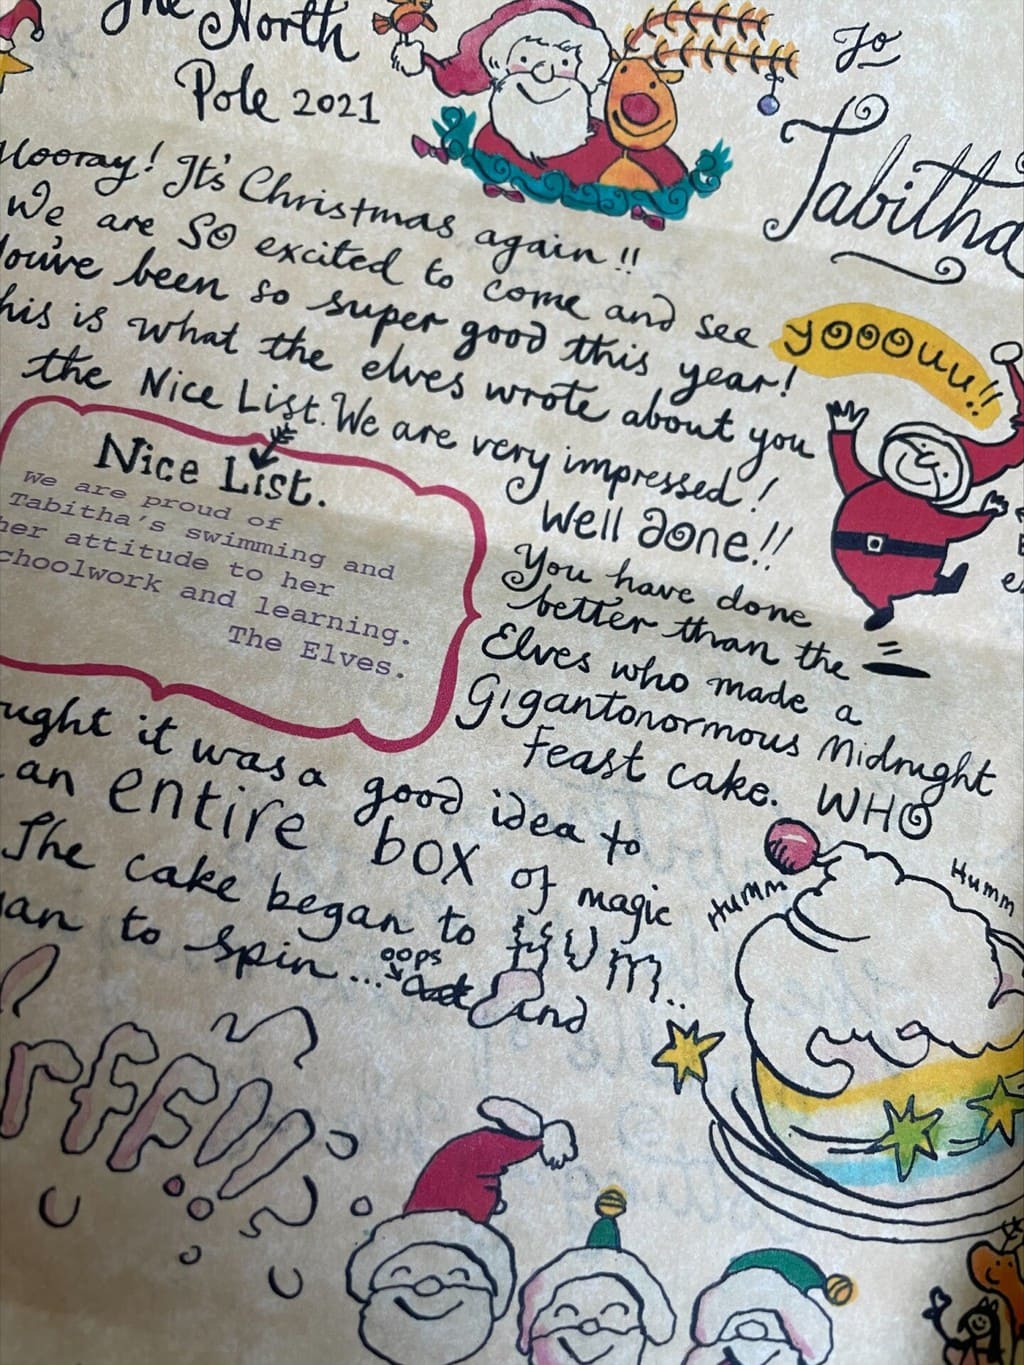 The North
Pole 2021
To
Tabitha
Hooray! It's Christmas again!!
We are SO excited to come and see yooouu!!
You've been so super good this year!
This is what the elves wrote about you
the Nice List. We are very impressed!
Well done!!
Nice List.
We are proud of
Tabitha's swimming and
her attitude to her
schoolwork and learning.
The Elves.
You have done
better than the
Elves who made a
Gigantonormous Midnught
Feast cake. WHO
ught it was a good idea to
an entire box of magic
The cake began to HUM..
an to spin... oops And
Humm
Humm